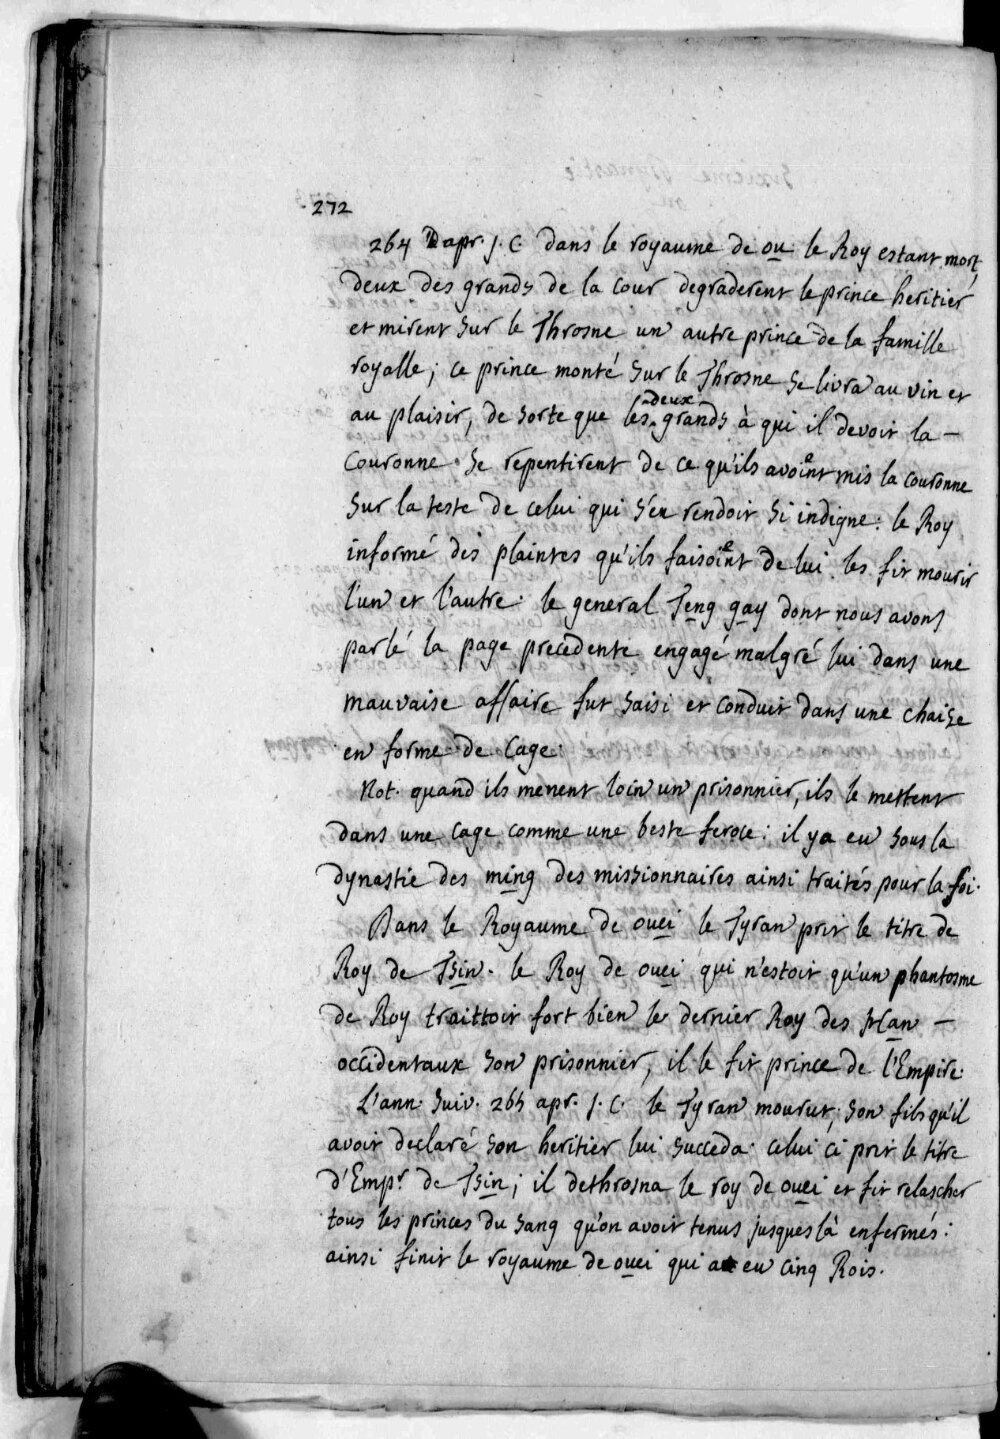 272
264 Dapr. J. C. dans le royaume de ou le Roy estant mort,
deux des grands de la cour degraderent le prince heritier
et mirent sur le Throsne un autre prince de la famille
royalle; ce prince monté sur le Throsne se livra au vin et
au plaisir, de sorte que les deux grands à qui il devoit la -
couronne se repentirent de ce qu'ils avoient mis la couronne
sur la teste de celui qui s'en rendoit si indigne: le Roy
informé des plaintes qu'ils faisoient de lui les fit mourir
l'un et l'autre. le general Teng gay dont nous avons
parlé la page precedente engagé malgré lui dans une
mauvaise affaire fut saisi et conduit dans une chaize
en forme de cage.
Not. quand ils menent loin un prisonnier, ils le mettent
dans une cage comme une beste feroce: il y a eu sous la
dynastie des ming des missionnaires ainsi traités pour la foi.
Dans le Royaume de ouei le Tyran prit le titre de
Roy de Tsin. le Roy de ouei qui n'estoit qu'un phantosme
de Roy traittoit fort bien le dernier Roy des han -
occidentaux son prisonnier, il le fit prince de l'Empire.
L'ann suiv. 265 apr. J. C. le Tyran mourut; son fils qu'il
avoit declaré son heritier lui succeda. celui ci prit le titre
d'Empr de Tsin; il dethrosna le roy de ouei et fit relascher
tous les princes du sang qu'on avoit tenus jusques là enfermés:
ainsi finit le royaume de ouei qui a eu cinq Rois.